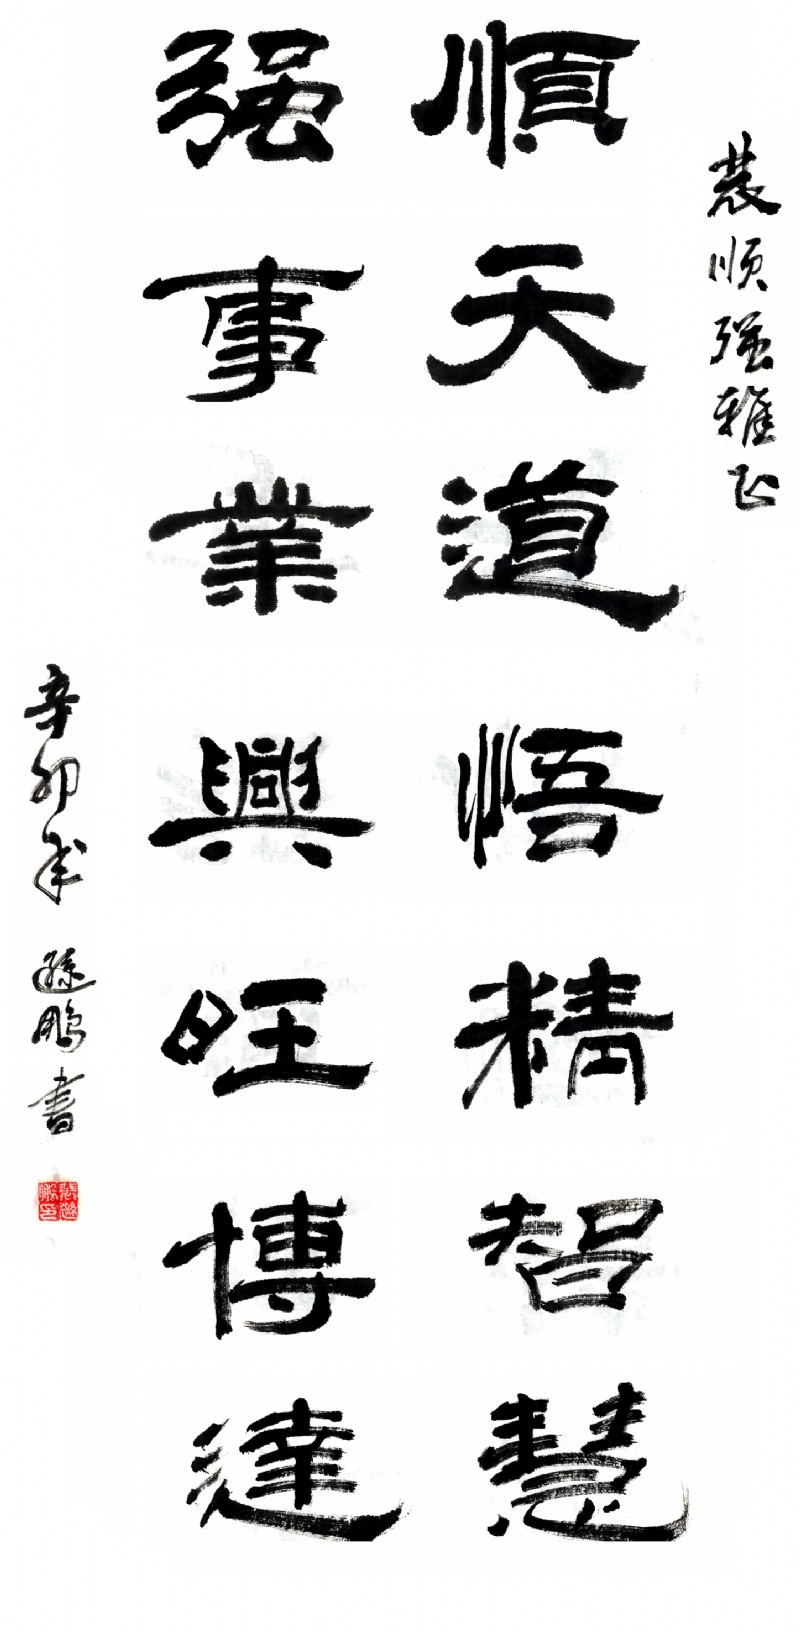 裴顺强雅正
順天道悟精智慧
强事業興旺博達
辛卯年 遜鵬書